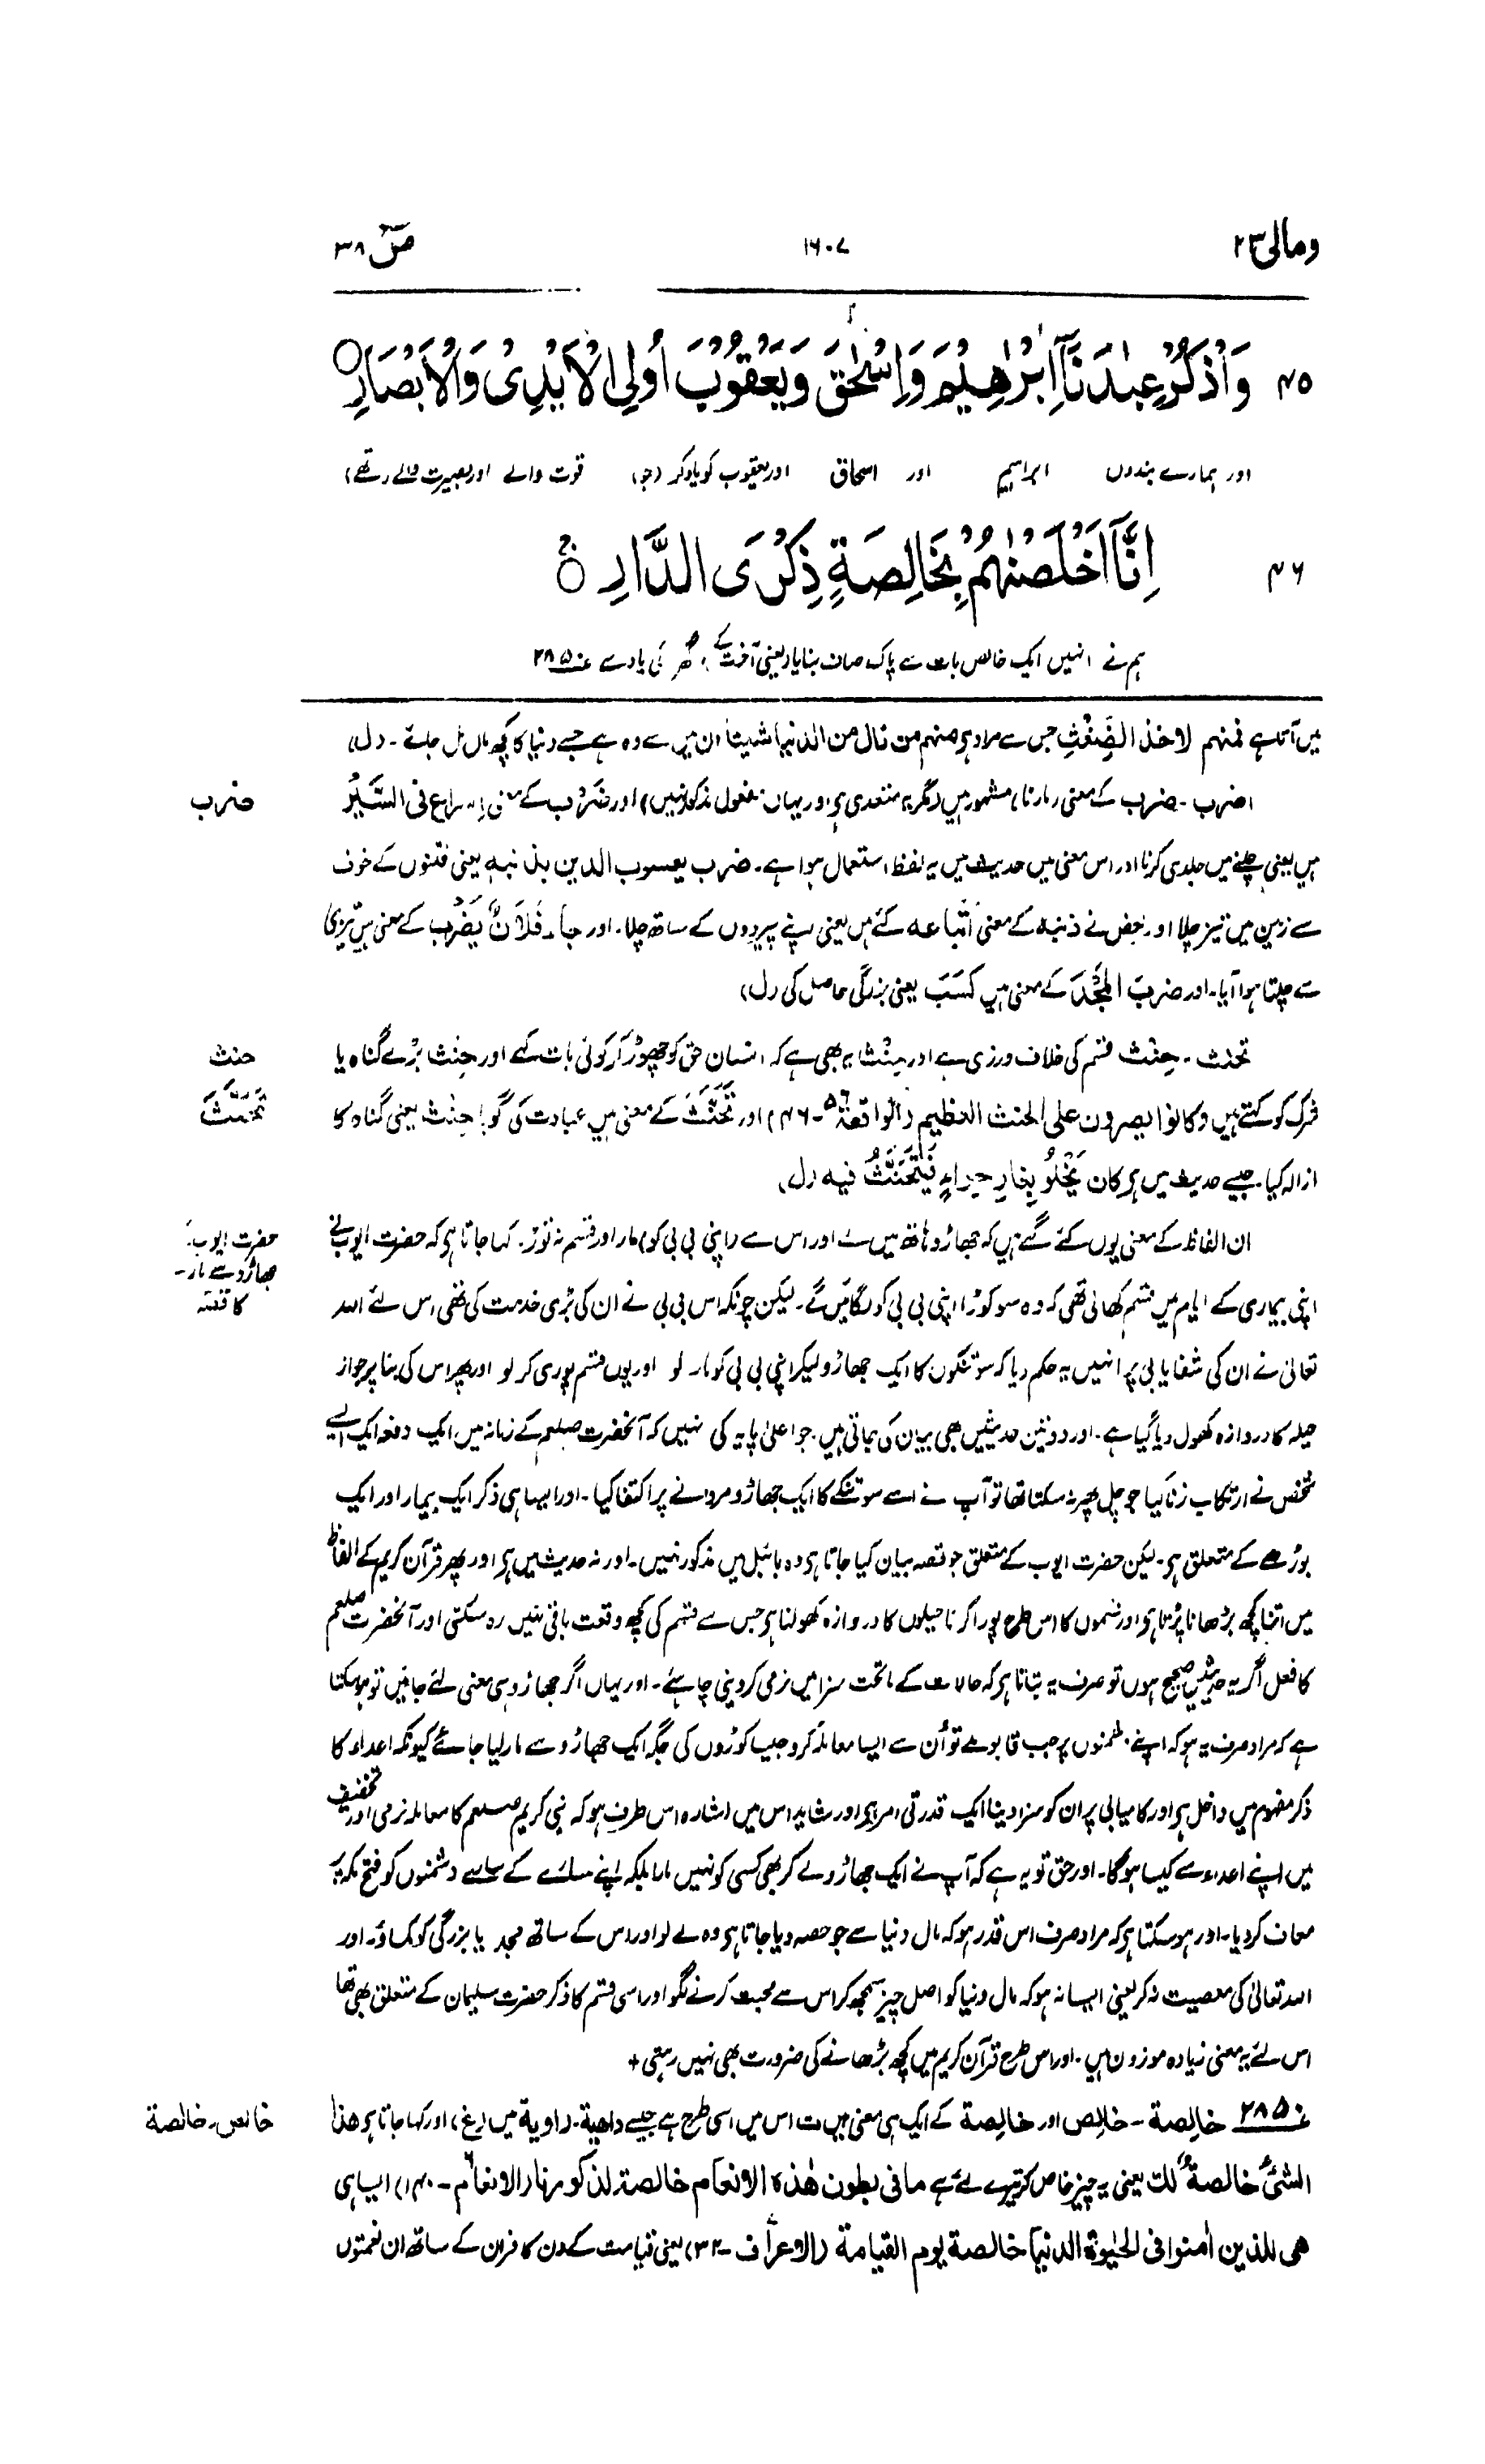 ومالی ۲۳
۱۶۰۷
صٓ ۳۸
۴۵ وَاذْكُرْ عِبٰدَنَآ اِبْرٰهِيْمَ وَاِسْحٰقَ وَيَعْقُوْبَ اُولِي الْاَيْدِيْ وَالْاَبْصَارِ
اور ہمارے بندوں ابراہیم اور اسحاق اور یعقوب کو یاد کر (جو) قوت والے اور بصیرت والے (تھے)
۴۶ اِنَّآ اَخْلَصْنٰهُمْ بِخَالِصَةٍ ذِكْرَى الدَّارِ
ہم نے انہیں ایک خالص بات سے پاک صاف بنایا (یعنی آخرت کے) گھر کی یاد سے ۲۸۵۰
میں آتا ہے فمنهم لاخذ الضِّغْثِ جس سے مراد ہو منهم من نال من الدنیا شیئا ان میں سے وہ ہے جسے دنیا کا کچھ مال مل جائے۔ (ل)
اضرب۔ ضرب کے معنی (مارنا) مشہور ہیں (مگر یہ متعدی ہے اور یہاں مفعول مذکور نہیں) اور ضرب کے معنی اسراع فی السَّیْر
ضرب
ہیں یعنی چلنے میں جلدی کرنا اور اس معنی میں حدیث میں یہ لفظ استعمال ہوا ہے۔ ضرب یعسوب الدین بذنبه یعنی فتنوں کے خوف
سے زمین میں تیز چلا اور بعض نے ذنبه کے معنی اتباعه کئے ہیں یعنی اپنے پیرووں کے ساتھ چلا۔ اور جاء فُلَانٌ یَضْرِب کے معنی ہیں تیزی
سے چلتا ہوا آیا۔ اور ضربَ المَجْدَ کے معنی ہیں کَسَبَ یعنی بزرگی حاصل کی (ل)
تحنث۔ حِنْث قسم کی خلاف ورزی ہے اور حنث یہ بھی ہے کہ انسان حق کو چھوڑ کر کوئی بات کہے اور حِنْث بڑے گناہ یا
حنث
شرک کو کہتے ہیں وکانوا یصرون علی الحنث العظیم (الواقعة ۵۶-۴۶) اور تَحَنَّثَ کے معنی ہیں عبادت کی گویا حِنْث یعنی گناہ کا
تَحَنَّثَ
ازالہ کیا۔ جیسے حدیث میں ہے کان یَخْلُو بِغارِ حِراءٍ فَیَتَحَنَّثُ فیه (ل)
ان الفاظ کے معنی یوں کئے گئے ہیں کہ جھاڑو ہاتھ میں لے اور اس سے (اپنی بی بی کو) مار اور قسم نہ توڑ۔ کہا جاتا ہے کہ حضرت ایوب نے
حضرت ایوب
جھاڑو سے مار
کا قصہ
اپنی بیماری کے ایام میں قسم کھائی تھی کہ وہ سو کوڑا اپنی بی بی کو لگائیں گے۔ لیکن چونکہ اس بی بی نے ان کی بڑی خدمت کی تھی اس لئے اللہ
تعالیٰ نے ان کی شفایابی پر انہیں یہ حکم دیا کہ سو تنکوں کا ایک جھاڑو لیکر اپنی بی بی کو مار لو اور یوں قسم پوری کر لو اور پھر اس کی بنا پر جواز
حیلہ کا دروازہ کھول دیا گیا ہے۔ اور دو تین حدیثیں بھی بیان کی جاتی ہیں۔ جو اعلیٰ پایہ کی نہیں کہ آنحضرت صلعم کے زمانہ میں ایک دفعہ ایک ایسے
شخص نے ارتکاب زنا کیا جو چل پھر نہ سکتا تھا تو آپ نے اسے سو تنکے کا ایک جھاڑو مروانے پر اکتفا کیا۔ اور ایسا ہی ذکر ایک بیمار اور ایک
بوڑھے کے متعلق ہو۔ لیکن حضرت ایوب کے متعلق جو قصہ بیان کیا جاتا ہو وہ بائبل میں مذکور نہیں۔ اور نہ حدیث میں ہو اور پھر قرآن کریم کے الفاظ
میں اتنا کچھ بڑھانا پڑتا ہو اور قسموں کا اس طرح پورا کرنا حیلوں کا دروازہ کھولنا ہو جس سے قسم کی کچھ وقعت باقی نہیں رہ سکتی اور آنحضرت صلعم
کا فعل اگر یہ حدیثیں صحیح ہوں تو صرف یہ بتاتا ہو کہ حالات کے ماتحت سزا میں نرمی کر دینی چاہئے۔ اور یہاں اگر جھاڑو ہی معنی لئے جائیں تو ہو سکتا
ہے کہ مراد صرف یہ ہو کہ اپنے دشمنوں پر جب قابو ملے تو اُن سے ایسا معاملہ کرو جیسا کوڑوں کی جگہ ایک جھاڑو سے مار لیا جائے کیونکہ اعداء کا
ذکر مفہوم میں داخل ہو اور کامیابی پر ان کو سزا دینا ایک قدرتی امر ہو اور شاید اس میں اشارہ اس طرف ہو کہ نبی کریم صلعم کا معاملہ نرمی اور تخفیف
میں اپنے اعداء سے کیسا ہوگا۔ اور حق تو یہ ہے کہ آپ نے ایک جھاڑو لے کر بھی کسی کو نہیں مارا بلکہ اپنے سارے کے سارے دشمنوں کو فتح مکہ پر
معاف کر دیا۔ اور ہو سکتا ہو کہ مراد صرف اس قدر ہو کہ مال دنیا سے جو حصہ دیا جاتا ہو وہ لے لو اور اس کے ساتھ مجد یا بزرگی کو کماؤ۔ اور
اللہ تعالیٰ کی معصیت نہ کر یعنی ایسا نہ ہو کہ مال دنیا کو اصل چیز سمجھ کر اس سے محبت کرنے لگو اور اسی قسم کا ذکر حضرت سلیمان کے متعلق بھی تھا
اس لئے یہ معنی زیادہ موزون ہیں۔ اور اس طرح قرآن کریم میں کچھ بڑھانے کی ضرورت بھی نہیں رہتی +
۲۸۵۰ خالِصة۔ خالِص اور خالِصة کے ایک ہی معنی ہیں ت اس میں اسی طرح ہے جیسے داهیة۔ راویة میں (غ) اور کہا جاتا ہو هذا
خالص۔ خالصة
الشیءُ خالصةٌ لك یعنی یہ چیز خاص کر تیرے لئے ہے ما فی بطون هٰذہ الانعام خالصة لذکورنا (الانعام ۶-۱۴۰) ایسا ہی
هی للذین اٰمنوا فی الحیٰوة الدنیا خالصة یوم القیامة (الاعراف ۳۲) یعنی قیامت کے دن کافروں کے ساتھ ان نعمتوں